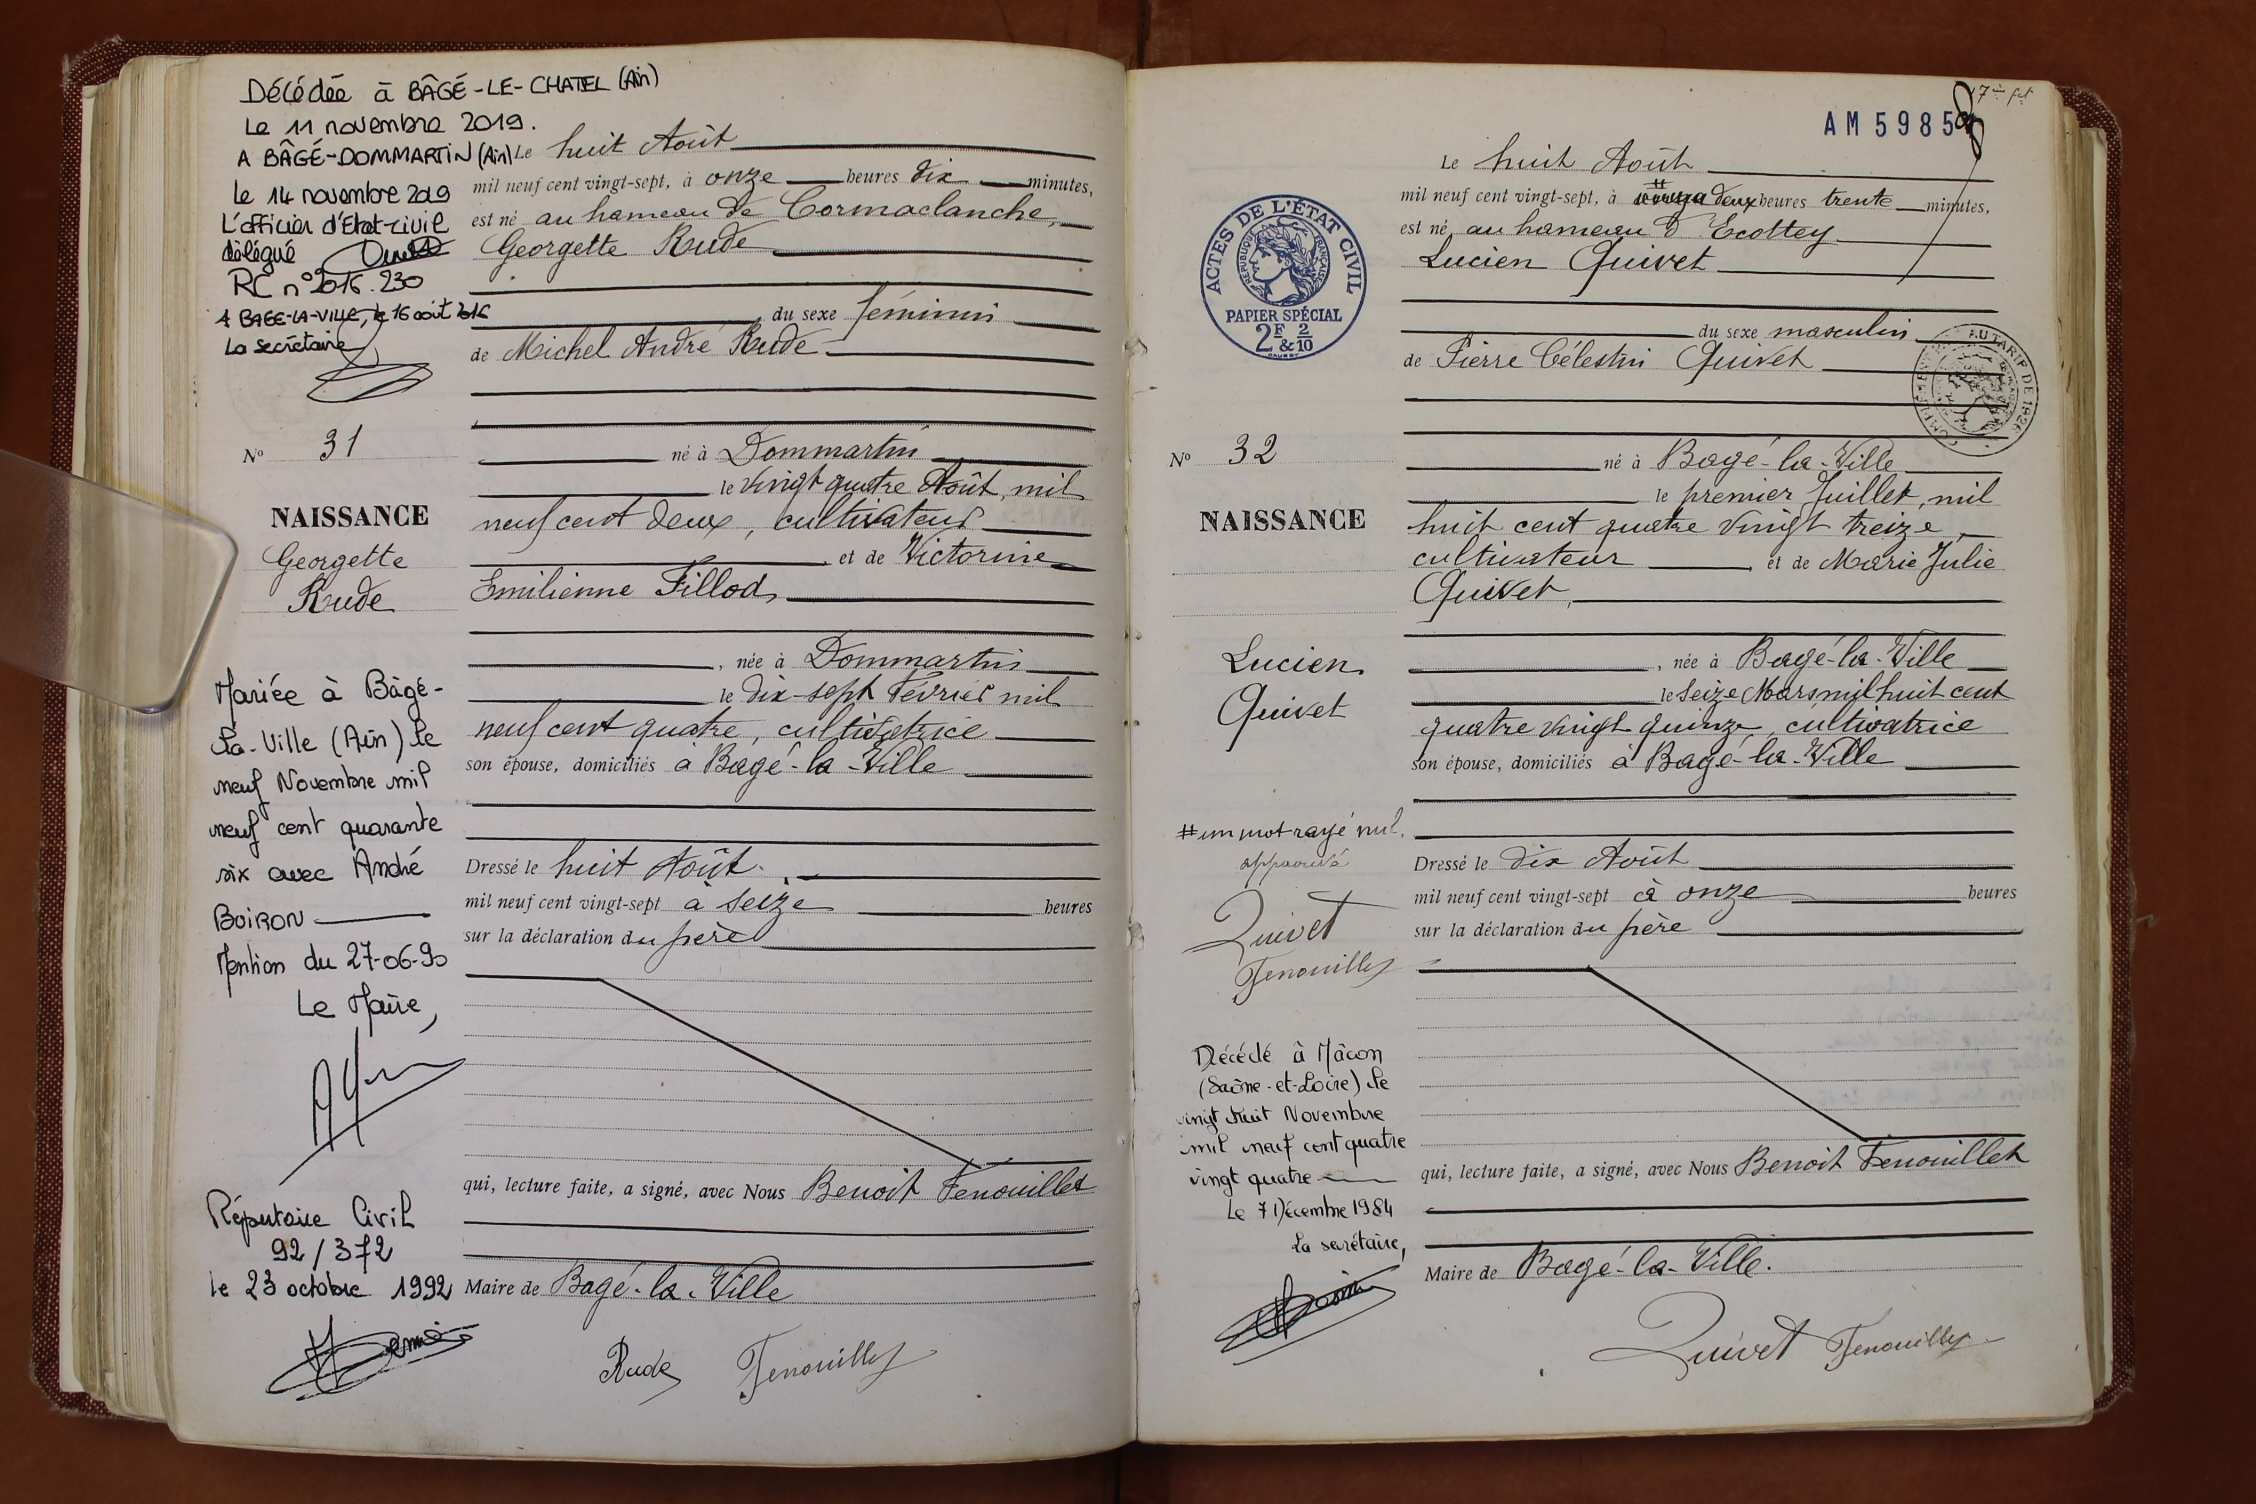 Décédée à BÂGÉ-LE-CHATEL (Ain)
Le 11 novembre 2019.
A BÂGÉ-DOMMARTIN (Ain)
le 14 novembre 2019
L'officier d'Etat-civil
délégué
RC n° 2016.230
A BAGE-LA-VILLE, le 16 août 2016
La secrétaire
N° 31
NAISSANCE
Georgette
Rude
Mariée à Bâgé-
La-Ville (Ain) le
neuf Novembre mil
neuf cent quarante
six avec André
BOIRON
Mention du 27-06-90
Le Maire,
Répertoire Civil
92/372
le 23 octobre 1992
Le huit Août
mil neuf cent vingt-sept, à onze heures dix minutes,
est né au hameau de Cormaclanche,
Georgette Rude
du sexe féminin
de Michel André Rude
né à Dommartin
le vingt quatre Août, mil
neuf cent deux, cultivateur
et de Victorine
Emilienne Fillod,
, née à Dommartin
le dix-sept Février mil
neuf cent quatre, cultivatrice
son épouse, domiciliés à Bagé-la-Ville
Dressé le huit Août.
mil neuf cent vingt-sept à seize heures
sur la déclaration du père
qui, lecture faite, a signé, avec Nous Benoit Fenouillet
Maire de Bagé-la-Ville
Rude Fenouillet
AM 5985
17è fet
ACTES DE L'ÉTAT CIVIL
RÉPUBLIQUE FRANÇAISE
PAPIER SPÉCIAL
2F & 2/10
N° 32
NAISSANCE
Lucien
Quivet
# un mot rayé nul.
approuvé
Quivet
Fenouillet
Décédé à Mâcon
(Saône-et-Loire) le
vingt huit Novembre
mil neuf cent quatre
vingt quatre
Le 7 Décembre 1984
La secrétaire,
Le huit Août
mil neuf cent vingt-sept, à # deux heures trente minutes,
est né au hameau d'Ecottey
Lucien Quivet
du sexe masculin
AU TARIF DE 1926
de Pierre Célestin Quivet
né à Bagé-la-Ville
le premier Juillet, mil
huit cent quatre vingt treize,
cultivateur et de Marie Julie
Quivet,
, née à Bagé-la-Ville
le seize Mars mil huit cent
quatre vingt quinze, cultivatrice
son épouse, domiciliés à Bagé-la-Ville
Dressé le dix Août
mil neuf cent vingt-sept à onze heures
sur la déclaration du père
qui, lecture faite, a signé, avec Nous Benoit Fenouillet
Maire de Bagé-la-Ville.
Quivet Fenouillet